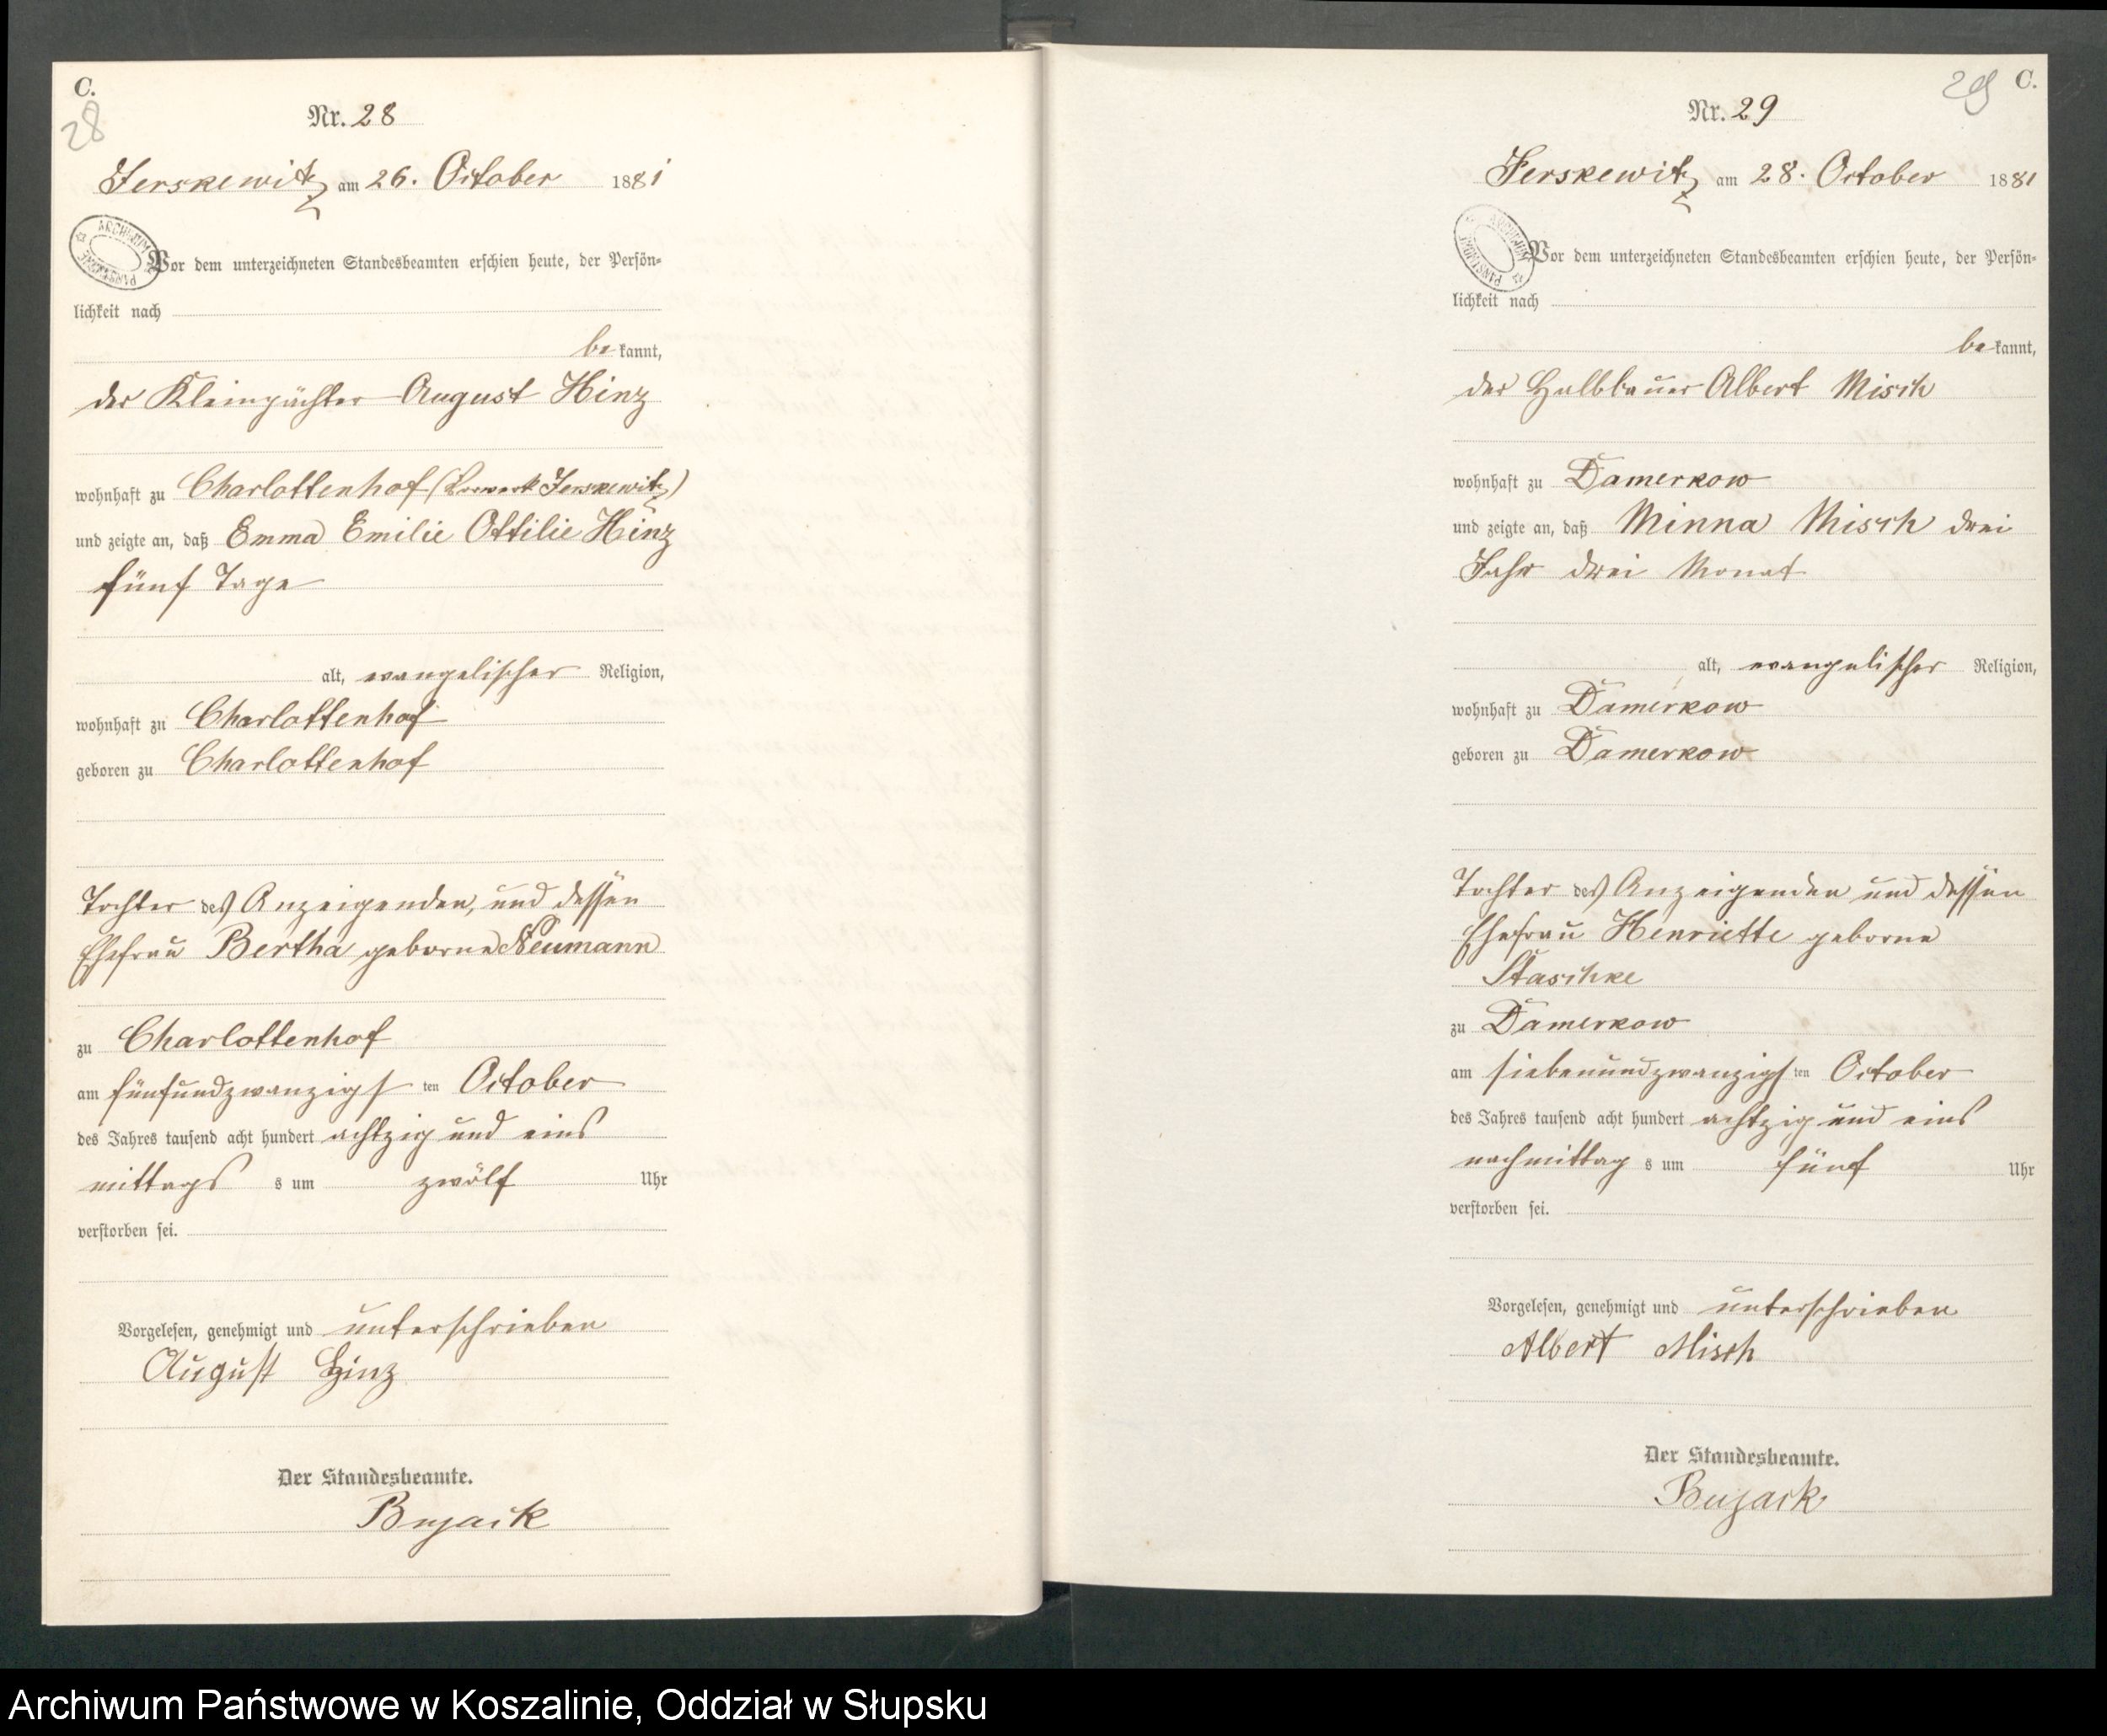 C.
28
Nr. 28
Jerskewitz am 26. October 1881
ARCHIWUM PAŃSTWOWE
Vor dem unterzeichneten Standesbeamten erschien heute, der Persön-
lichkeit nach
be kannt,
der Kleinpächter August Hinz
wohnhaft zu Charlottenhof (Vorwerk Jerskewitz)
und zeigte an, daß Emma Emilie Ottilie Hinz
fünf Tage
alt, evangelischer Religion,
wohnhaft zu Charlottenhof
geboren zu Charlottenhof
Tochter des Anzeigenden, und dessen
Ehefrau Bertha geborne Neumann
zu Charlottenhof
am fünfundzwanzigs ten October
des Jahres tausend acht hundert achtzig und eins
mittags s um zwölf Uhr
verstorben sei.
Vorgelesen, genehmigt und unterschrieben
August Hinz
Der Standesbeamte.
Bujack
29 C.
Nr. 29
Jerskewitz am 28. October 1881
ARCHIWUM PAŃSTWOWE
Vor dem unterzeichneten Standesbeamten erschien heute, der Persön-
lichkeit nach
be kannt,
der Halbbauer Albert Misch
wohnhaft zu Damerkow
und zeigte an, daß Minna Misch drei
Jahr drei Monat
alt, evangelischer Religion,
wohnhaft zu Damerkow
geboren zu Damerkow
Tochter des Anzeigenden und dessen
Ehefrau Henriette geborne
Staschke
zu Damerkow
am siebenundzwanzigs ten October
des Jahres tausend acht hundert achtzig und eins
nachmittag s um fünf Uhr
verstorben sei.
Vorgelesen, genehmigt und unterschrieben
Albert Misch
Der Standesbeamte.
Bujack
Archiwum Państwowe w Koszalinie, Oddział w Słupsku